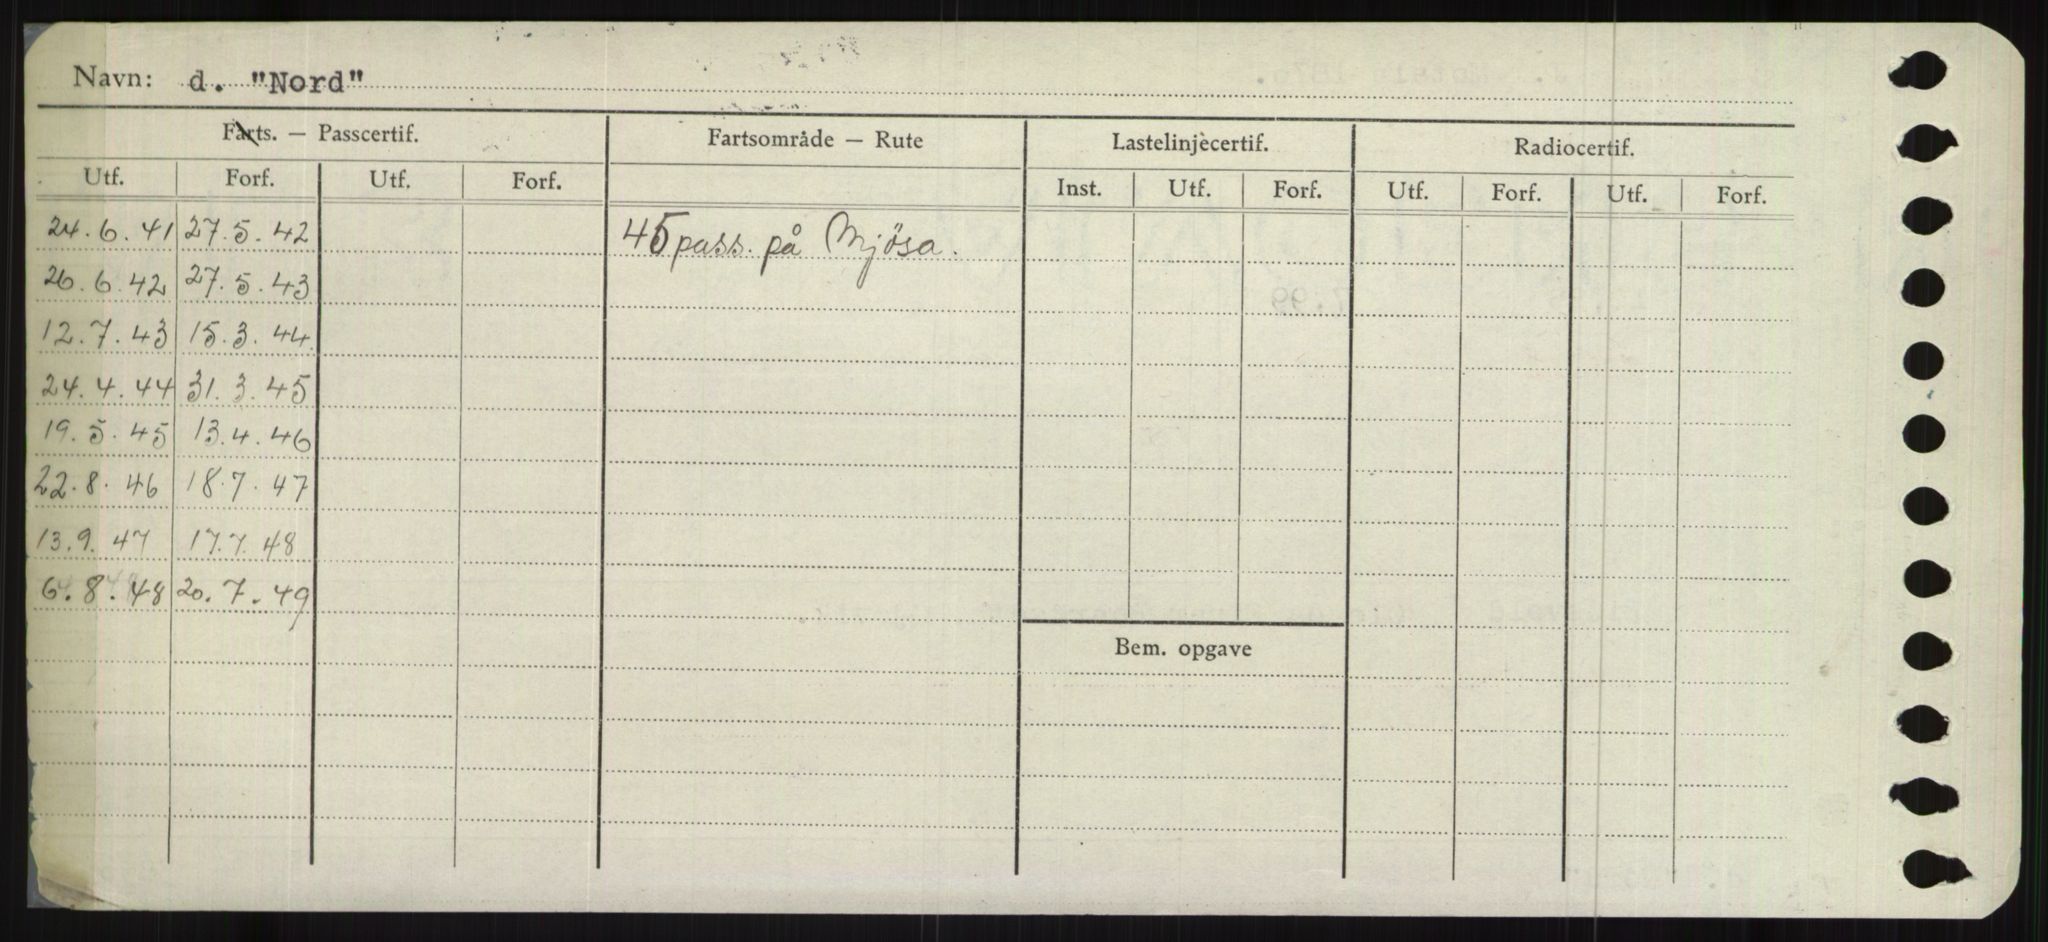 Navn: d. "Nord"
Farts. — Passcertif. Fartsområde — Rute Lastelinjecertif. Radiocertif.
Utf. Forf. Utf. Forf. Inst. Utf. Forf. Utf. Forf. Utf. Forf.
24.6.41 27.5.42 45 pass. på Mjösa.
26.6.42 27.5.43
12.7.43 15.3.44
24.4.44 31.3.45
19.5.45 13.4.46
22.8.46 18.7.47
13.9.47 17.7.48
6.8.48 20.7.49
Bem. opgave